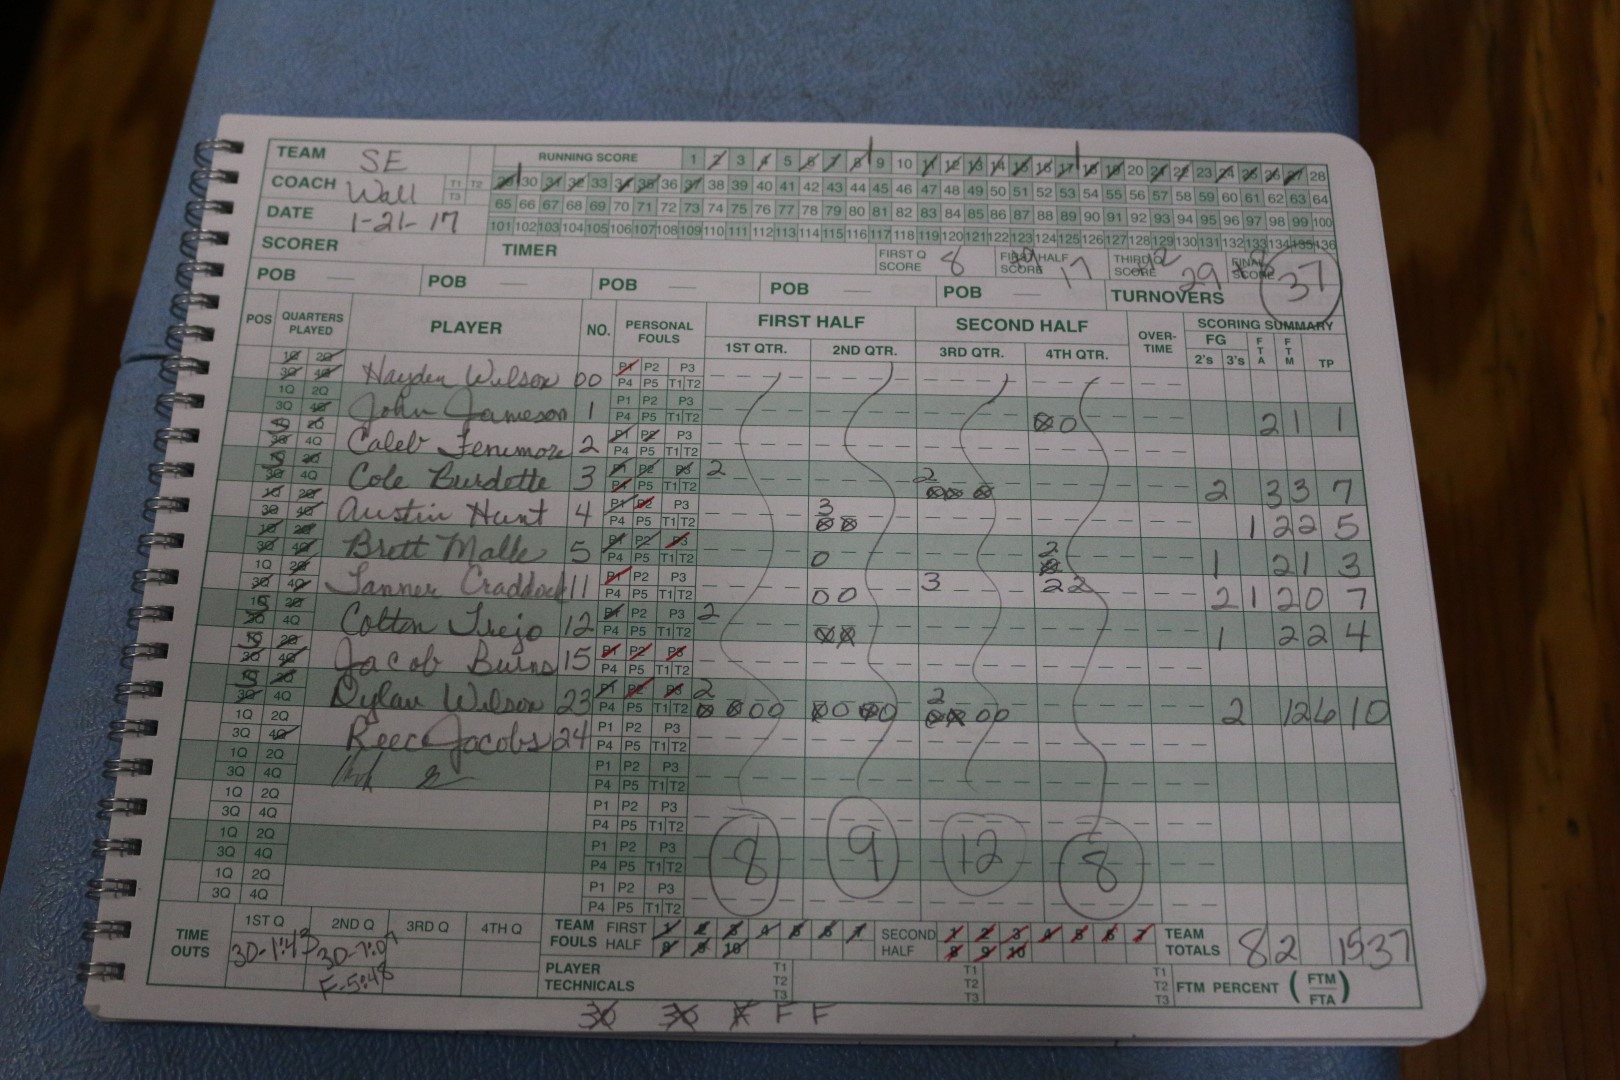 TEAM SE RUNNING SCORE 1 2 3 4 5 6 7 8 9 10 11 12 13 14 15 16 17 18 19 20 21 22 23 24 25 26 27 28
COACH Wall T1 T2 T3 29 30 31 32 33 34 35 36 37 38 39 40 41 42 43 44 45 46 47 48 49 50 51 52 53 54 55 56 57 58 59 60 61 62 63 64
65 66 67 68 69 70 71 72 73 74 75 76 77 78 79 80 81 82 83 84 85 86 87 88 89 90 91 92 93 94 95 96 97 98 99 100
DATE 1-21-17 101 102 103 104 105 106 107 108 109 110 111 112 113 114 115 116 117 118 119 120 121 122 123 124 125 126 127 128 129 130 131 132 133 134 135 136
SCORER TIMER FIRST Q SCORE 8 HALF SCORE 17 THIRD Q SCORE 29 FINAL SCORE 37
POB — POB — POB — POB — POB — TURNOVERS
POS QUARTERS PLAYED PLAYER NO. PERSONAL FOULS FIRST HALF SECOND HALF OVER-TIME SCORING SUMMARY
1ST QTR. 2ND QTR. 3RD QTR. 4TH QTR. FG 2's 3's FTA FTM TP
1Q 2Q 3Q 4Q Hayden Wilson 00 P1 P2 P3 P4 P5 T1 T2
1Q 2Q 3Q 4Q John Jameson 1 P1 P2 P3 P4 P5 T1 T2 0 0 2 1 1
1Q 2Q 3Q 4Q Caleb Fenimore 2 P1 P2 P3 P4 P5 T1 T2
1Q 2Q 3Q 4Q Cole Burdette 3 P1 P2 P3 P4 P5 T1 T2 2 2 0 0 0 2 3 3 7
1Q 2Q 3Q 4Q Austin Hunt 4 P1 P2 P3 P4 P5 T1 T2 3 0 0 1 2 2 5
1Q 2Q 3Q 4Q Brett Malle 5 P1 P2 P3 P4 P5 T1 T2 0 2 0 1 2 1 3
1Q 2Q 3Q 4Q Tanner Craddock 11 P1 P2 P3 P4 P5 T1 T2 0 0 3 2 2 2 1 2 0 7
1Q 2Q 3Q 4Q Colton Trejo 12 P1 P2 P3 P4 P5 T1 T2 2 0 0 1 2 2 4
1Q 2Q 3Q 4Q Jacob Burns 15 P1 P2 P3 P4 P5 T1 T2
1Q 2Q 3Q 4Q Dylan Wilson 23 P1 P2 P3 P4 P5 T1 T2 2 0 0 0 0 0 0 0 0 2 0 0 0 0 2 12 6 10
1Q 2Q 3Q 4Q Reec Jacobs 24 P1 P2 P3 P4 P5 T1 T2
1Q 2Q 3Q 4Q P1 P2 P3 P4 P5 T1 T2
1Q 2Q 3Q 4Q P1 P2 P3 P4 P5 T1 T2
1Q 2Q 3Q 4Q P1 P2 P3 P4 P5 T1 T2 8 9 12 8
1Q 2Q 3Q 4Q P1 P2 P3 P4 P5 T1 T2
TIME OUTS 1ST Q 2ND Q 3RD Q 4TH Q TEAM FOULS FIRST HALF 1 2 3 4 5 6 7 8 9 10 SECOND HALF 1 2 3 4 5 6 7 8 9 10 TEAM TOTALS 8 2 15 37
30-1:43 F-5:48
PLAYER TECHNICALS T1 T2 T3 T1 T2 T3 T1 T2 T3 FTM PERCENT (FTM/FTA)
30 30 F F F